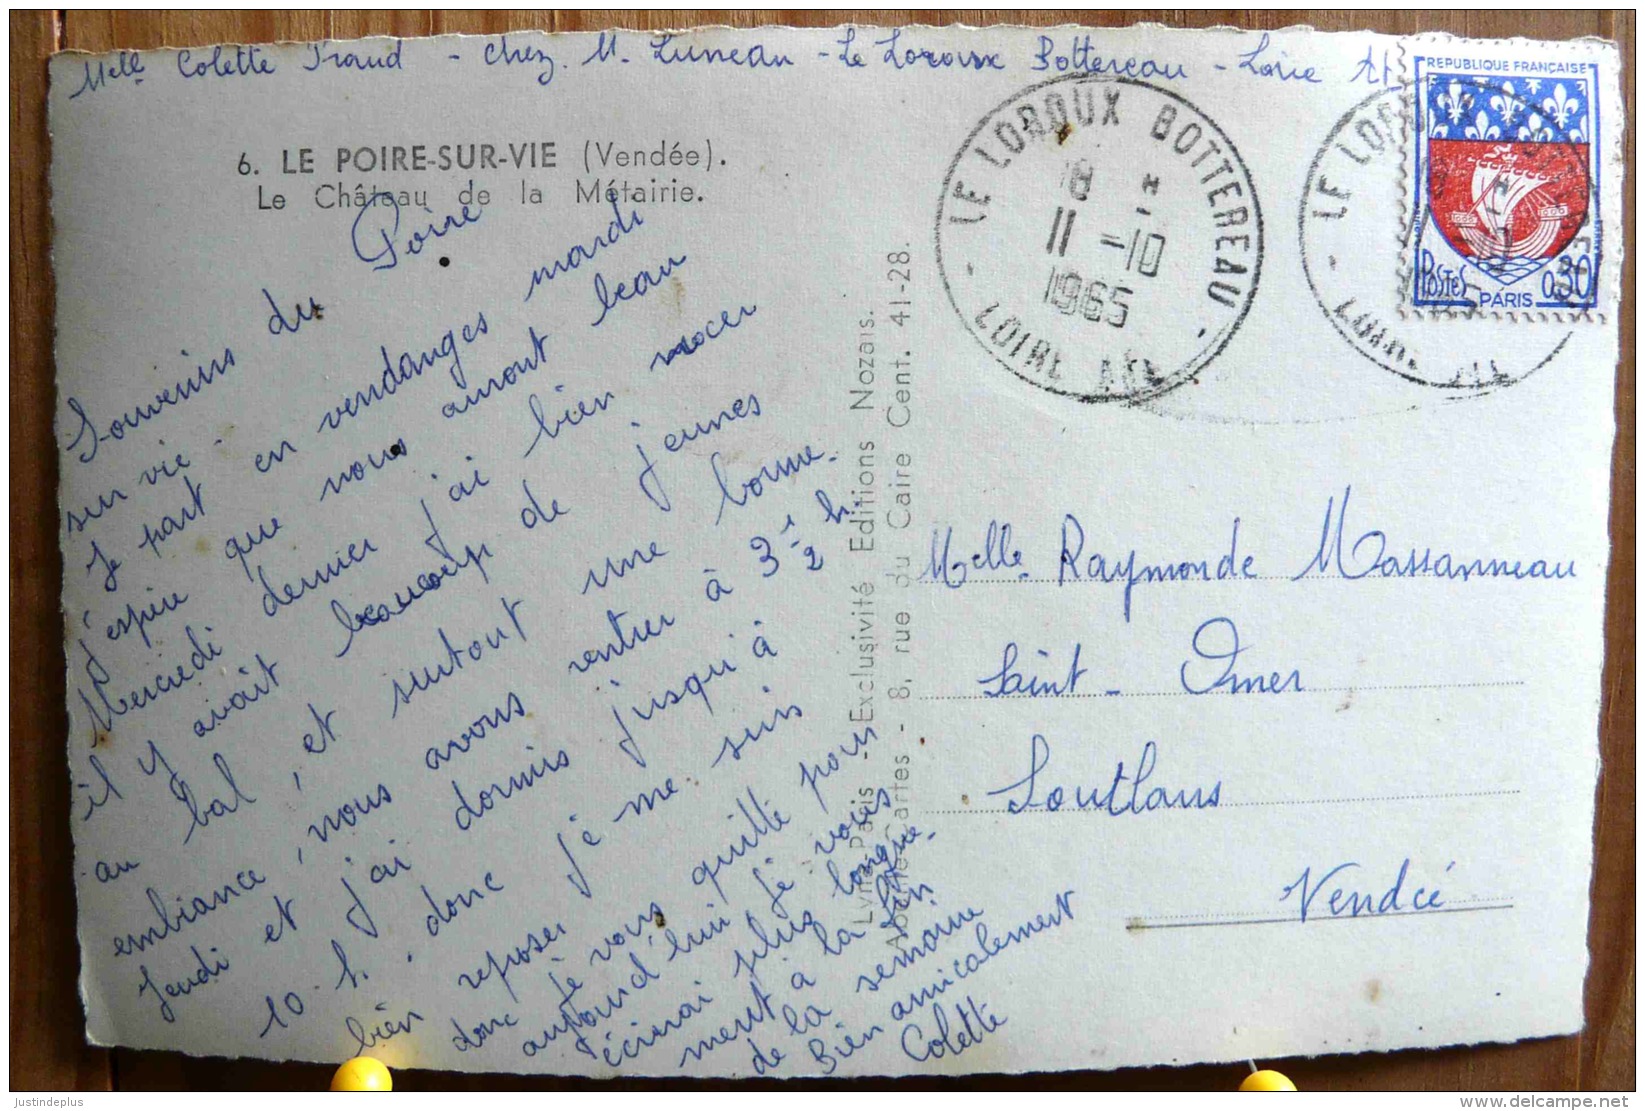 Melle Colette Praud - Chez M. Luneau - Le Loroux Bottereau - Loire At
6. LE POIRE-SUR-VIE (Vendée).
Le Château de la Métairie.
Souvenirs du Poire
sur vie.
Je part en vendanges mardi
j'espère que nous auront beau
Mercredi dernier j'ai bien nocer
il y avait beaucoup de jeunes
au bal, et surtout une bonne
embiance, nous avons rentrer à 3 1/2 h.
Jeudi et j'ai dormis jusqu'à
10 h. donc je me suis
bien reposer
donc je vous quitte pour
aujourd'hui je vous
écrirai plus longue
ment à la fin
de la semaine
Bien amicalement
Colette
Lyna-Paris - Exclusivité Editions Nozais.
Abeille-Cartes - 8, rue du Caire Cent. 41-28.
LE LOROUX BOTTEREAU
18 H
11 -10
1965
LOIRE ATL
LE LOROUX BOTTEREAU
REPUBLIQUE FRANÇAISE
POSTES
PARIS
0,30
Melle Raymonde Massanneau
Saint-Omer
Soullans
Vendée
Justindeplus
delcampe.net